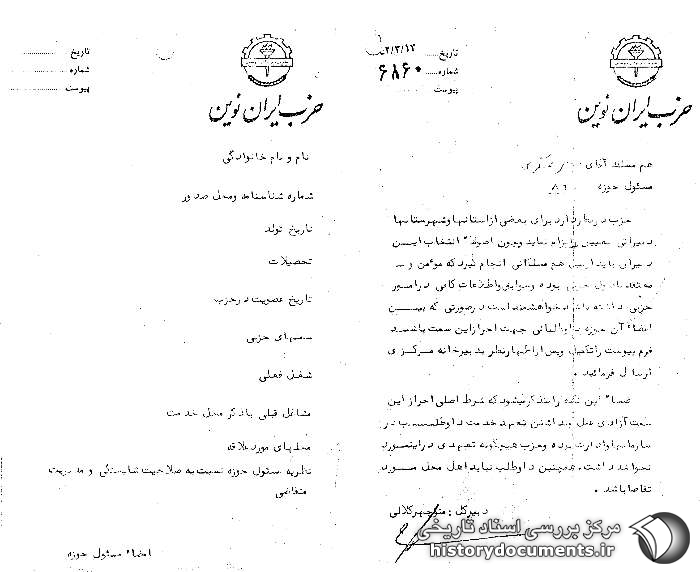 تاریخ ۲/۳/۱۳
شماره ۶۸۶۰
پیوست
حزب ایران نوین
هم مسلک آقای
مسئول حوزه
حزب در نظر دارد برای بعضی از استانها و شهرستانها
دبیرانی تعیین و اعزام نماید و چون اصولا" انتخاب ایـن
دبیران باید از بین هم مسلکانی انجام گیرد که مومن و
معتقد باصول حزبی بوده و سوابق و اطلاعات کافی در امـور
حزبی داشته باشند خواهشمند است در صورتی که بیـــن
اعضاء آن حوزه داوطلبانی جهت احراز این سمت باشـد
فرم پیوست را تکمیل و پس از اظهار نظر به دبیرخانه مرکـزی
ارسال فرمائید .
ضمنا" این نکته را متذکر میشود که شرط اصلی احراز این
سمت آزادی عمل و نداشتن تعهد خدمت داوطلـــب در
سازمانها و ادارات بوده و حزب هیچگونه تعهدی در اینمـورد
نخواهد داشت. همچنین داوطلب نباید اهل محل مـــورد
تقاضا باشد .
دبیرکل : منوچهر کلالی
تاریخ
شماره
پیوست
حزب ایران نوین
نام و نام خانوادگی
شماره شناسنامه و محل صدور
تاریخ تولد
تحصیلات
تاریخ عضویت در حزب
سمتهای حزبی
شغل فعلی
مشاغل قبلی با ذکر محل خدمت
محلهای مورد علاقه
نظریه مسئول حوزه نسبت به صلاحیت شایستگی و مدیریت
متقاضی
امضاء مسئول حوزه
مرکز بررسی اسناد تاریخی
historydocuments.ir